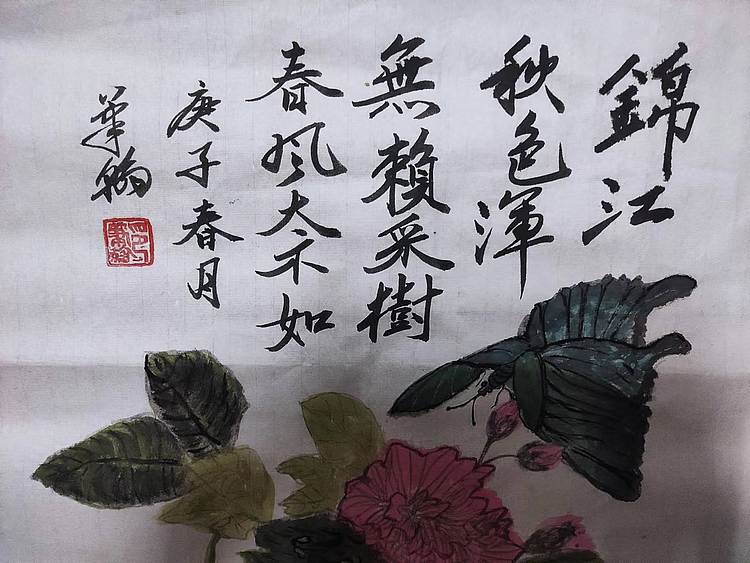 錦江
秋色渾
無賴采樹
春風太不如
庚子春月
華翰